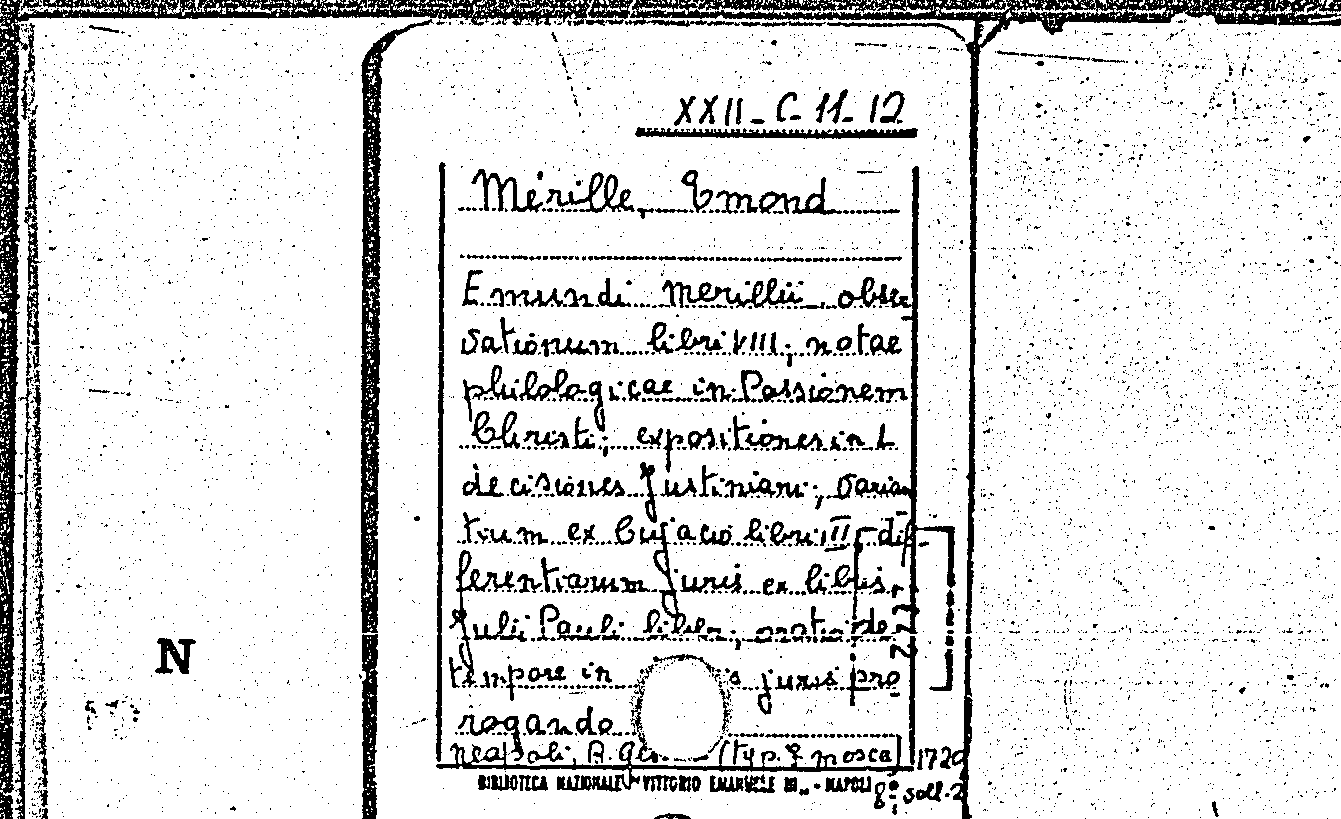 XXII - C - 11 - 12
Mérille, Emond
Emundi Merillii obser
vationum libri VIII; notae
philologicae in Passionem
Christi; expositiones in L
decisiones Justiniani; varian
tium ex Cujacio libri III dif-
ferentiarum juris ex libris
Julii Pauli liber; oratio de
tempore in juris pro
rogando
Neapoli, (typ. F. Mosca) 1720
BIBLIOTECA NAZIONALE VITTORIO EMANUELE III - NAPOLI
8° voll. 2
N